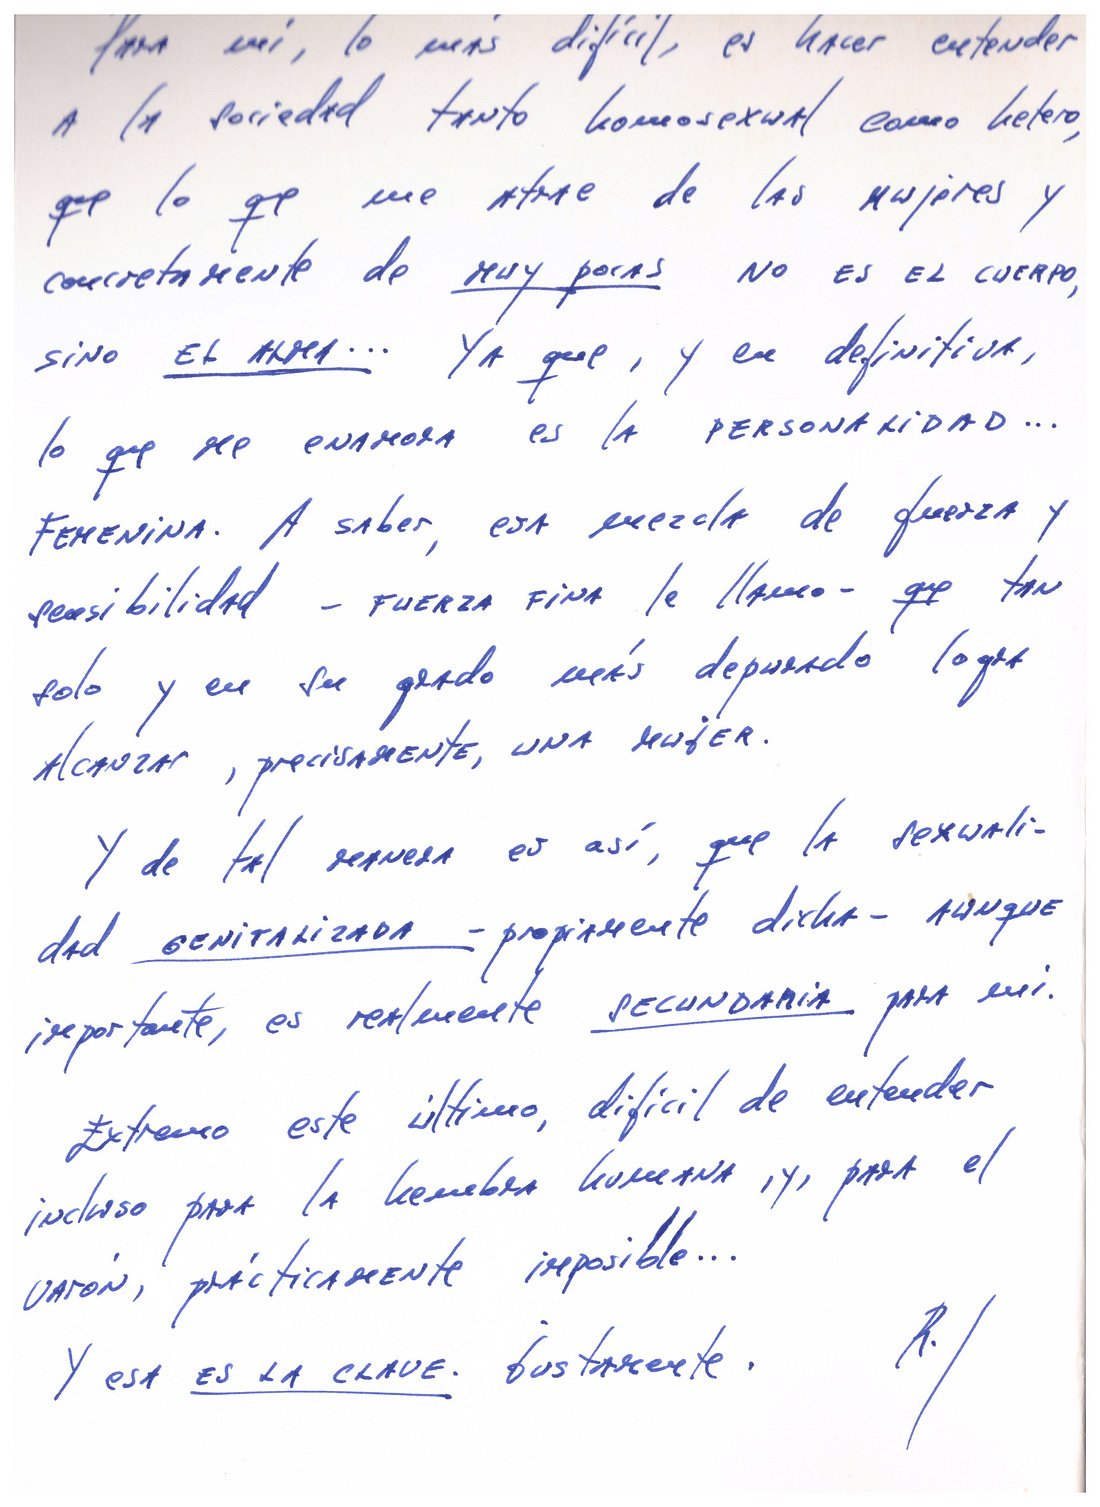 Para mí, lo más difícil, es hacer entender
A la sociedad tanto homosexual como hetero,
que lo que me atrae de las mujeres y
concretamente de muy pocas NO ES EL CUERPO,
sino EL ALMA... Ya que, y en definitiva,
lo que me enamora es la PERSONALIDAD...
FEMENINA. A saber, esa mezcla de fuerza y
sensibilidad - FUERZA FINA le llamo - que tan
solo y en su grado más depurado logra
alcanzar, precisamente, una mujer.
Y de tal manera es así, que la sexuali-
dad GENITALIZADA - propiamente dicha - aunque
importante, es realmente SECUNDARIA para mi.
Extremo este último, difícil de entender
incluso para la hembra humana, y, para el
varón, prácticamente imposible...
Y esa ES LA CLAVE. Justamente. R.